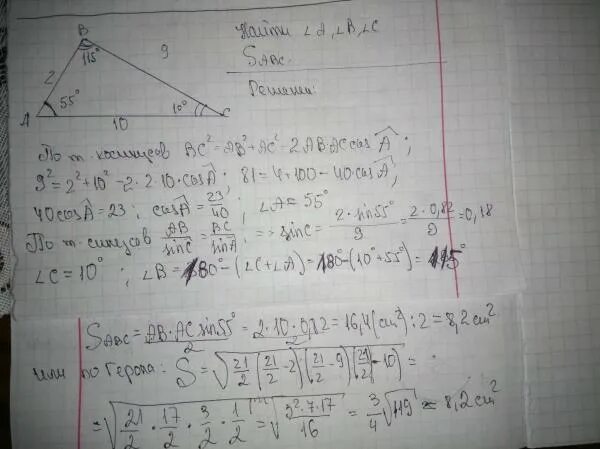 Найти ∠A, ∠B, ∠C
S ABC.
Решение:
B
115°
9
2
55°
10°
A
10
C
По т. косинусов BC² = AB² + AC² - 2AB·AC cos A;
9² = 2² + 10² - 2·2·10·cos A; 81 = 4 + 100 - 40·cos A;
40 cos A = 23; cos A = 23/40; ∠A = 55°
По т. синусов AB/sin C = BC/sin A; => sin C = 2·sin 55°/9 = 2·0,82/9 = 0,18
∠C = 10°; ∠B = 180° - (∠C + ∠A) = 180° - (10° + 55°) = 115°
S ABC = AB·AC sin 55°/2 = 2·10·0,82/2 = 16,4 (см²) : 2 = 8,2 см².
или по Герона: S = √(21/2 (21/2 - 2)(21/2 - 9)(21/2 - 10)) =
= √(21/2 · 17/2 · 3/2 · 1/2) = √(3²·7·17/16) = 3/4 √119 ≈ 8,2 см²